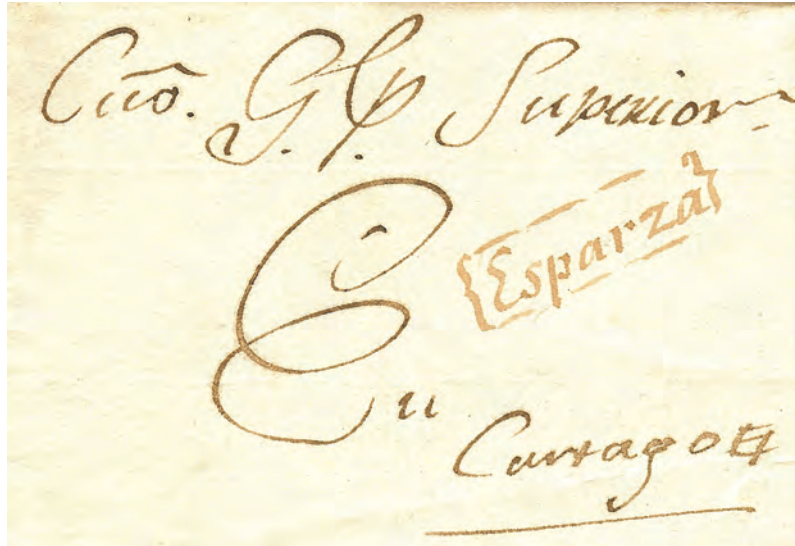 Cuō. G. P. Superior
Esparza
En
Cartago